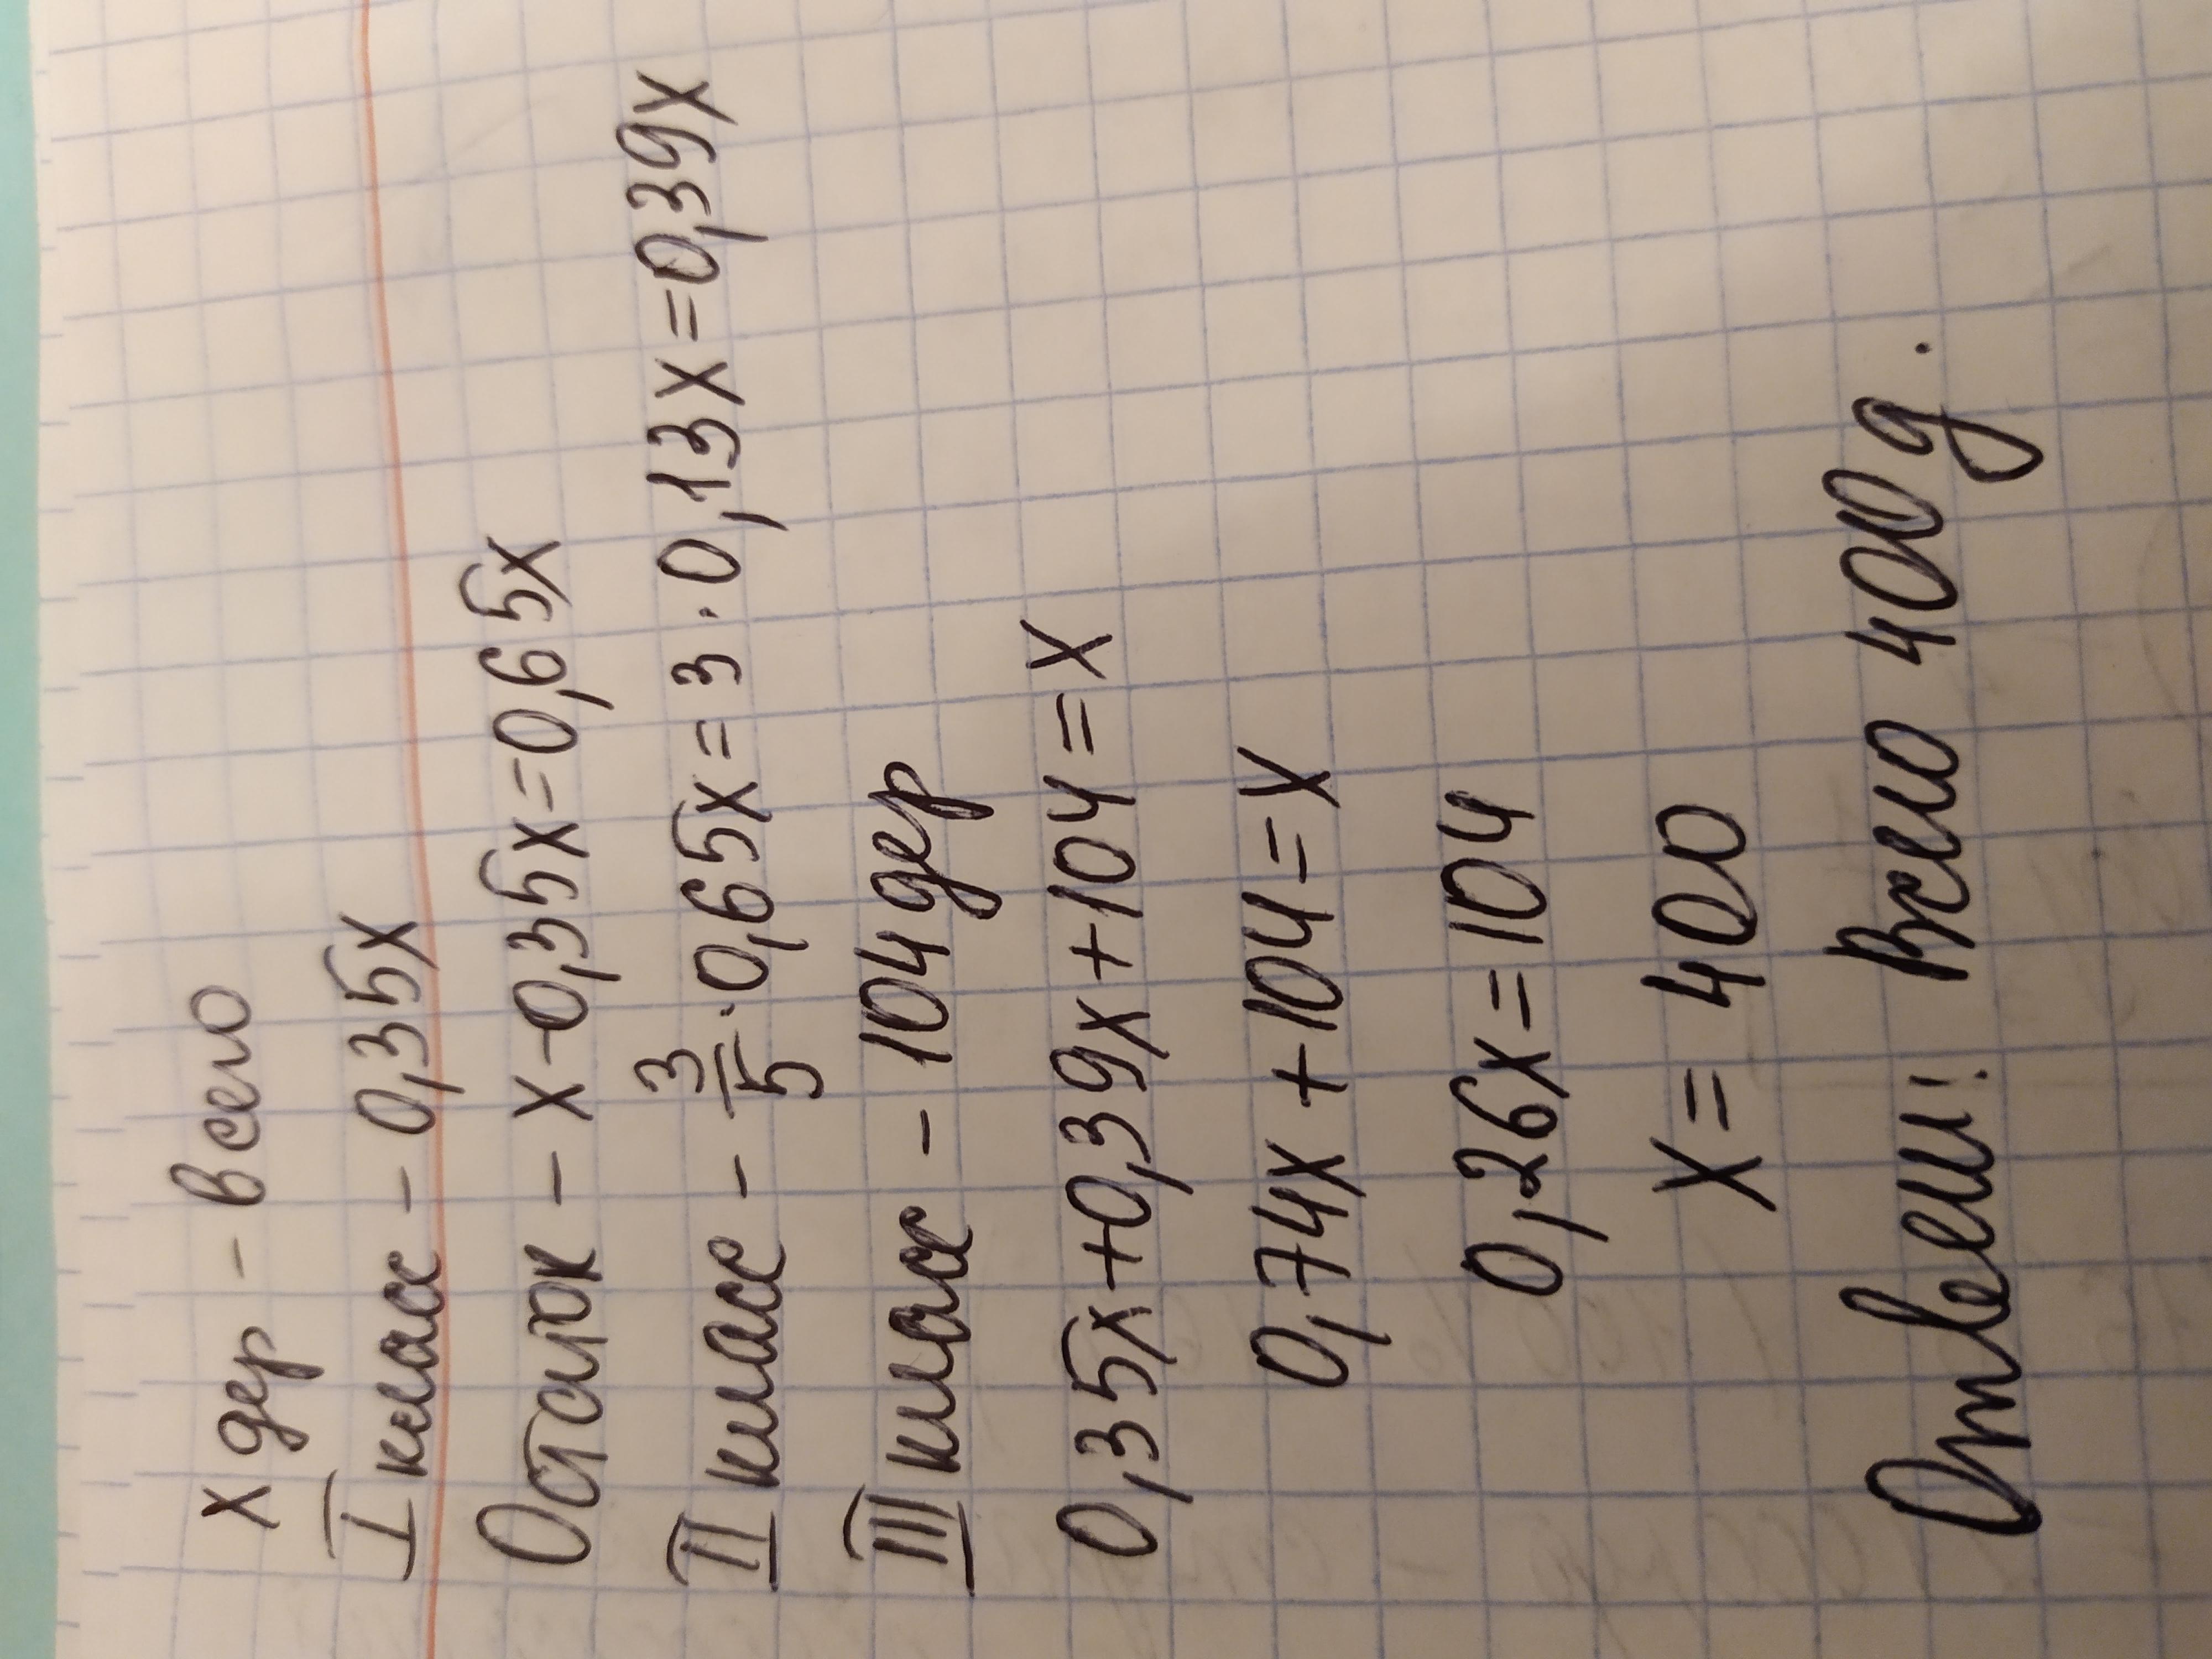 x дер - всего
I класс - 0,35x
Остаток - x-0,35x=0,65x
II класс - 3/5·0,65x=3·0,13x=0,39x
III класс - 104 дер
0,35x+0,39x+104=x
0,74x+104=x
0,26x=104
x=400
Ответ: Всего 400 д.